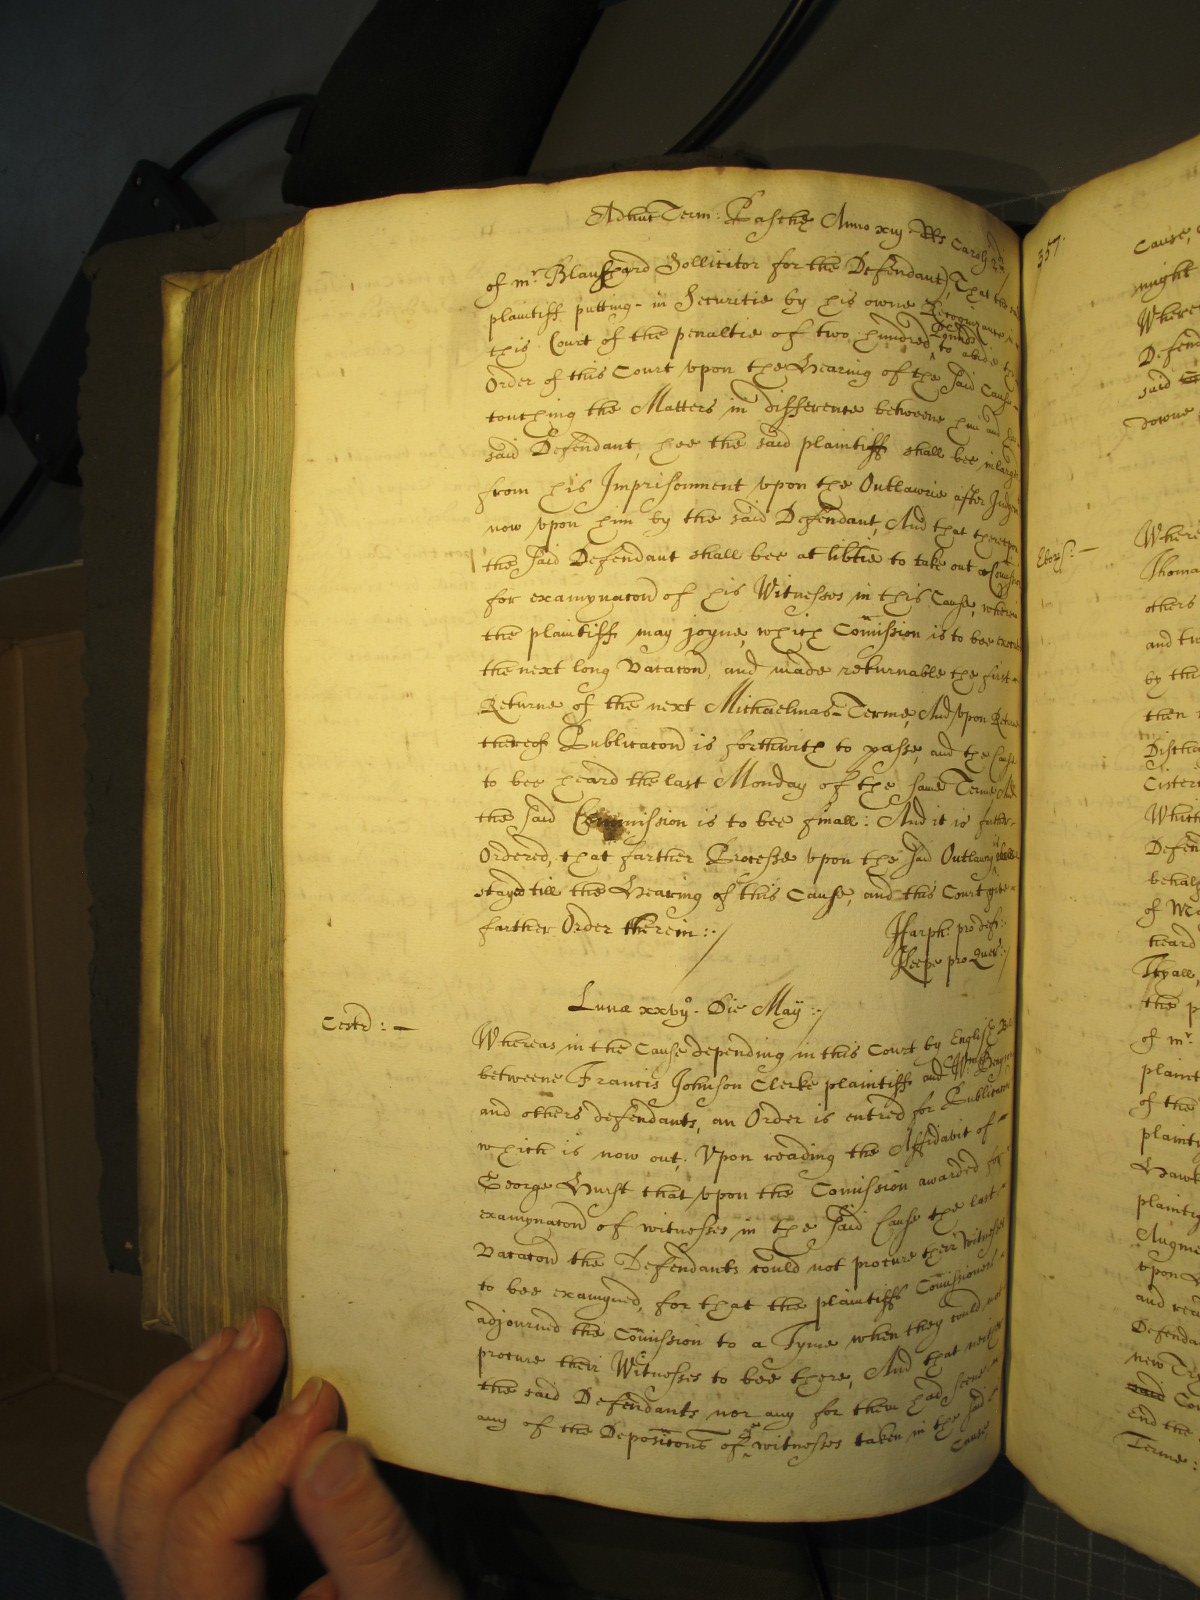 Adhuc Term: Pasche Anno xvij RRs Caroli
of mr. Blanchard Sollicitor for the Defendant) That the
plaintiff putting in Securitie by his owne Recognizance
this Court of the penaltie of two hundred Pounds to abide the
Order of this Court vpon the Hearing of the said Cause
touching the Matters in difference betweene him and the
said Defendant, hee the said plaintiff shall bee inlarged
from his Imprisonment vpon the Outlawrie after Judgmt
now vpon him by the said Defendant, And that therevpon
the said Defendant shall bee at libtie to take out a Comission
for examynacon of his Witnesses in this Cause, wherein
the plaintiff may joyne, which Comission is to bee executed
the next long Vacacon, and made returnable the first
Returne of the next Michaelmas Terme, And vpon Returne
thereof Publicacon is forthwith to passe, and the Cause
to bee heard the last Monday of the same Terme, And
the said Commission is to bee finall: And it is further
Ordered, that farther Processe vpon the said Outlawry shall
stayed till the Hearing of this Cause, and this Court give
farther Order therein :/
Harph: pro def:
Keepe pro Quer:/
Lunæ xxvijo. Die May :/
Cestr: :—
Whereas in the Cause depending in this Court by English Bill
betweene Francis Johnson Clerke plaintiff and Wm
and others defendants, an Order is entred for Publicacon
which is now out; Vpon reading the Affidavit of
George Hurst that vpon the Comission awarded for
examynacon of witnesses in the said Cause the last
Vacacon the Defendants could not procure their witnesses
to bee examyned, for that the plaintiffs Comissioners
adjourned the Comission to a Tyme when they could not
procure their Witnesses to bee there, And that neither
the said Defendants nor any for them had seene
any of the Deposicons of the witnesses taken in the said
Cause
357.
Cause,
might
Where
Defen
said
downe
Ebor: :—
Where
Thoma
others
and tw
by the
then
Discha
Cister
Whitt
Defen
behalf
of Mr
heard
Tryall,
the p
of mr.
plaint
of the
plainti
Hawk
plainti
Augme
vpon
and rec
Defenda
new Try
said Cou
End the
Terme: